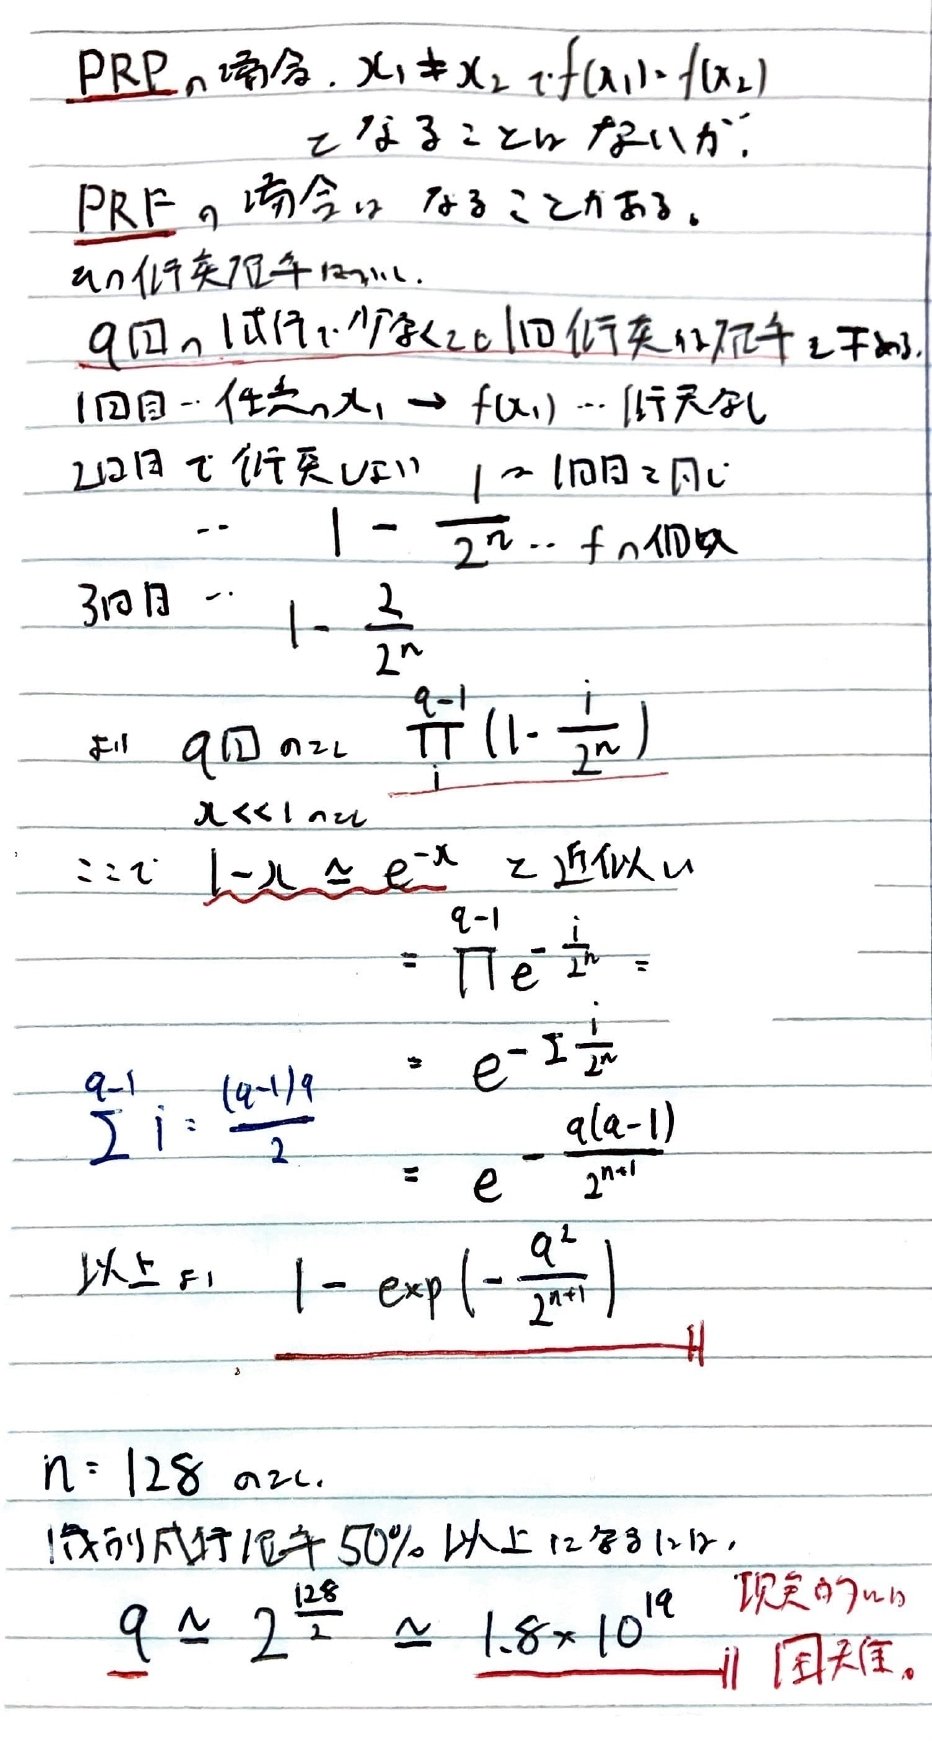 PRPの場合、x₁ ≠ x₂ で f(x₁) = f(x₂)
となることはないが、
PRFの場合は なることがある。
この衝突確率について、
q回の試行で少なくとも1回衝突する確率を求める。
1回目… 任意の x₁ → f(x₁) … 衝突なし
2回目で衝突しない
… 1 - 1/2ⁿ ~ 1回目と同じ … fの個数
3回目 … 1 - 2/2ⁿ
より q回のとき ∏ᵢ^{q-1} (1 - i/2ⁿ)
x << 1 のとき
ここで 1-x ≃ e^{-x} と近似し
= ∏^{q-1} e^{-i/2ⁿ} =
= e^{-Σ i/2ⁿ}
Σ^{q-1} i = (q-1)q/2
= e^{-q(q-1)/2^{n+1}}
以上より 1 - exp(-q²/2^{n+1})
n = 128 のとき、
識別成功確率 50% 以上になるには、
q ≃ 2^{128/2} ≃ 1.8 × 10¹⁹
現実的には
困難。